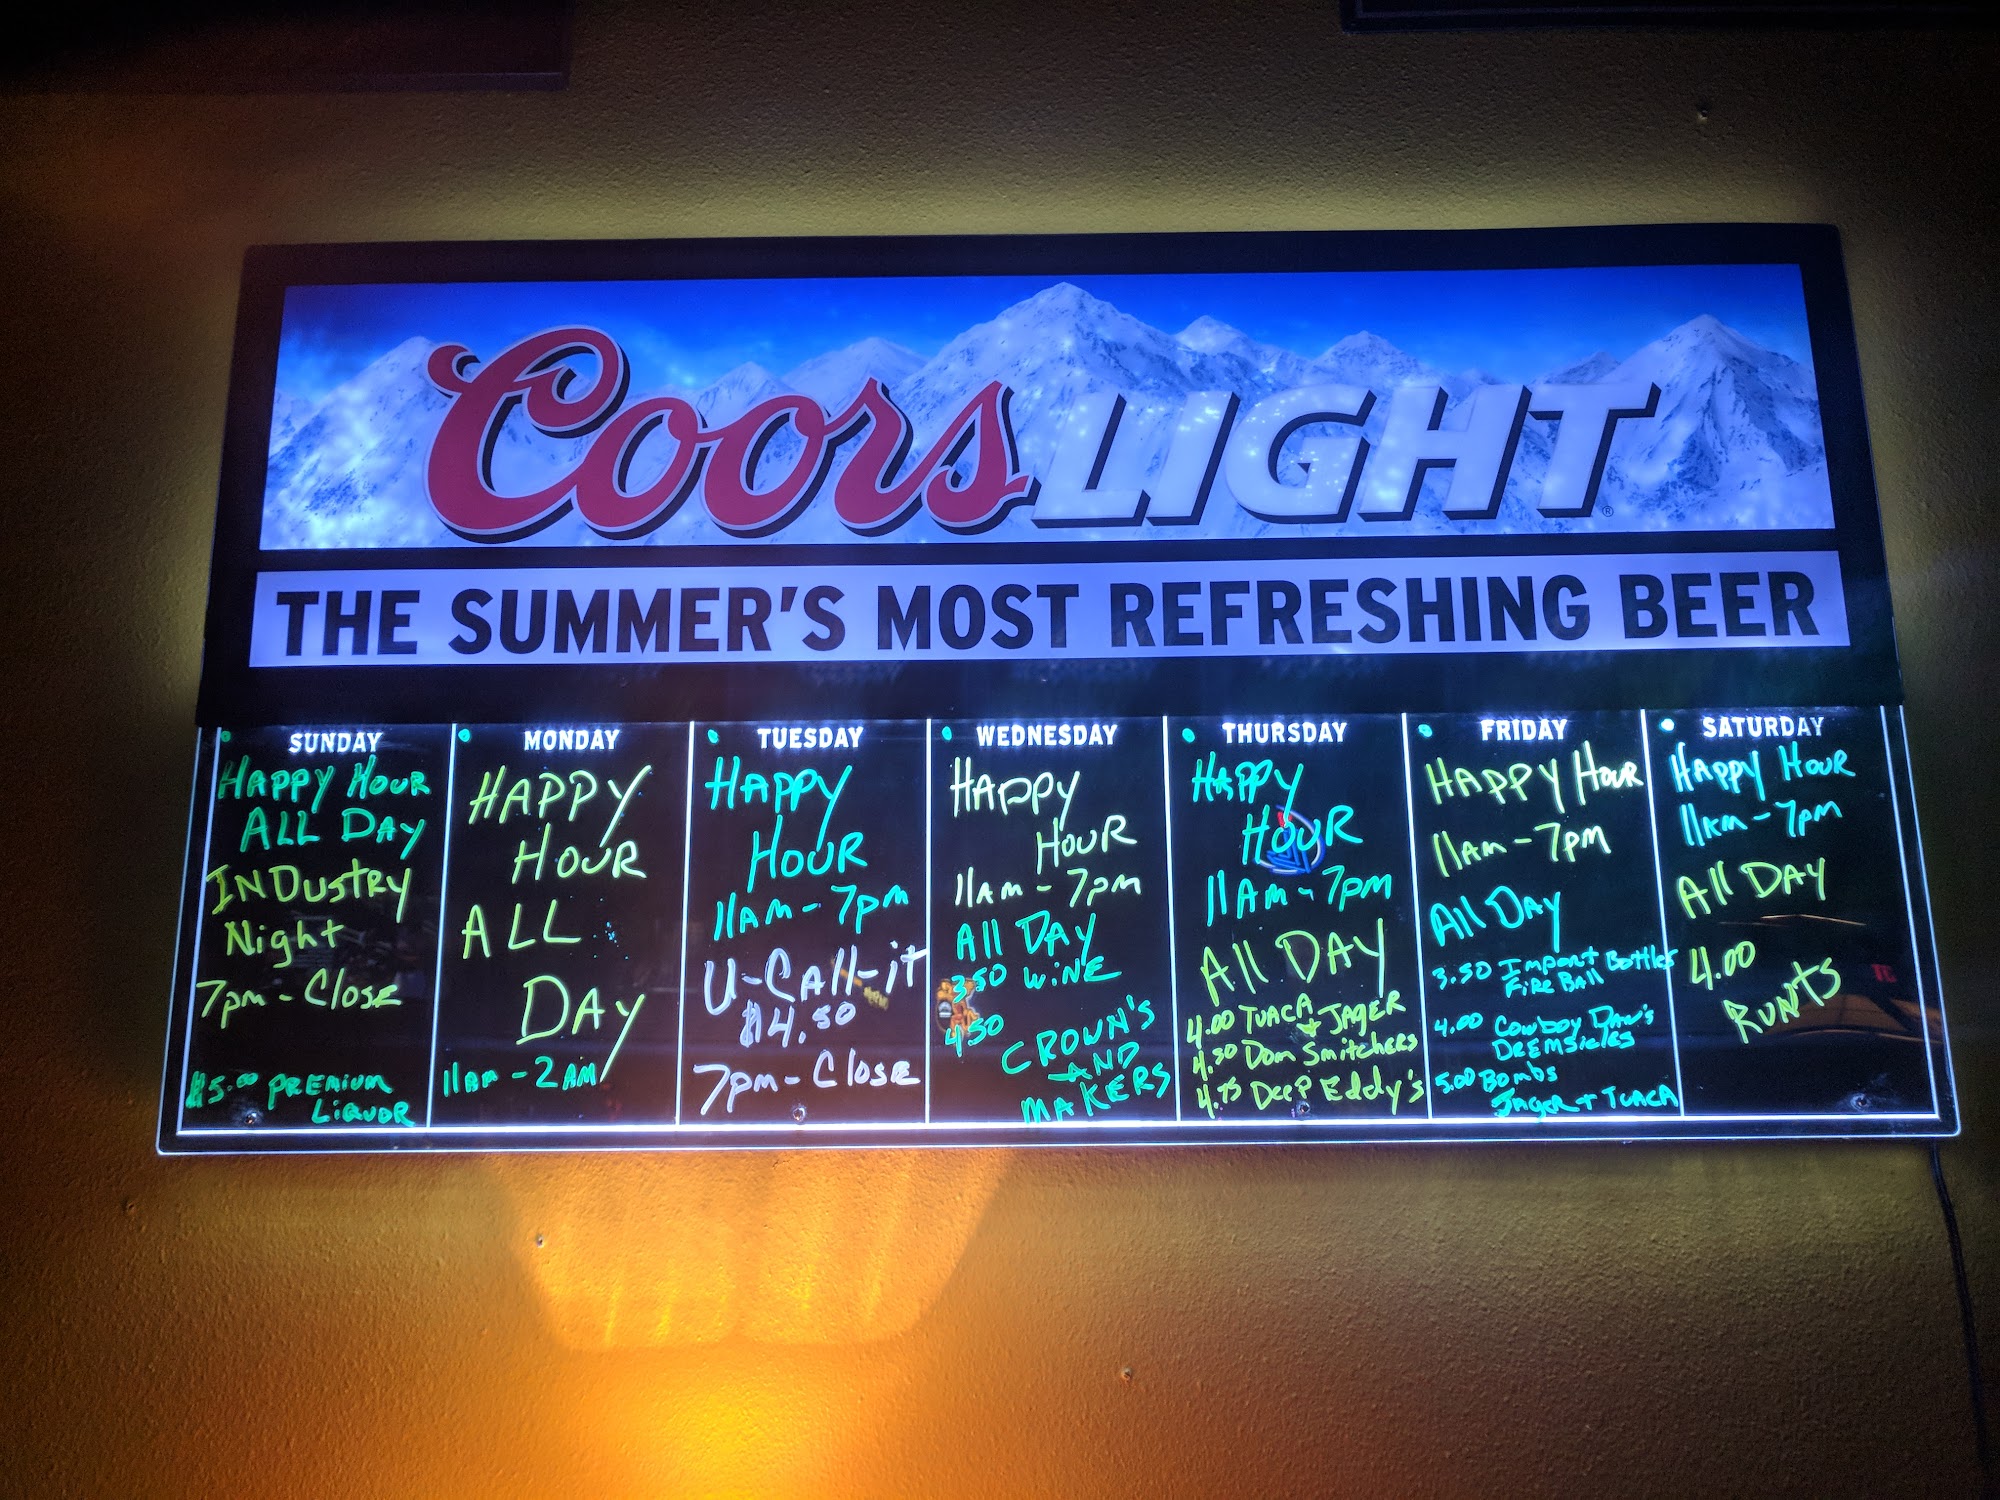 Coors LIGHT
THE SUMMER'S MOST REFRESHING BEER
SUNDAY
HAPPY HOUR
ALL DAY
INDustry
Night
7pm - Close
$5.00 PREMIUM
LIQUOR
MONDAY
HAPPY
HOUR
ALL
DAY
11AM - 2AM
TUESDAY
HAPPY
HOUR
11AM - 7pm
U-CAll-it
$4.50
7pm - Close
WEDNESDAY
HAPPY
HOUR
11AM - 7pm
All DAY
3.50 WINE
4.50
CROWN'S
AND
MAKERS
THURSDAY
HAPPY
HOUR
11AM - 7pm
All DAY
4.00 TUACA + JAGER
4.50 Dom Smitchers
4.75 DEEP Eddy's
FRIDAY
HAPPY HOUR
11AM - 7pm
All DAY
3.50 Import Bottles
FIRE BAll
4.00 Cowboy DAN'S
DREMSICLES
5.00 Bombs
JAGER + TUACA
SATURDAY
HAPPY HOUR
11AM - 7pm
All DAY
4.00
RUNTS